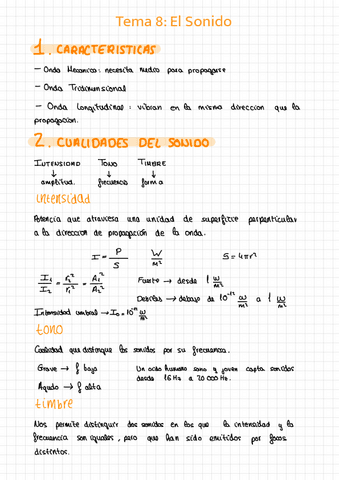 Tema 8: El Sonido
1. CARACTERISTICAS
- Onda Mecanica: necesita medio para propagarse
- Onda Tridimensional
- Onda Longitudinal: vibran en la misma direccion que la
propagacion.
2. CUALIDADES DEL SONIDO
INTENSIDAD TONO TIMBRE
↓ ↓ ↓
amplitud. frecuencia forma
intensidad
Potencia que atraviesa una unidad de superficie perpendicular
a la direccion de propagación de la onda.
I = P/S W/m² S = 4πr²
I₁/I₂ = r₂²/r₁² = A₁²/A₂² Fuerte → desde 1 W/m²
Debiles → debajo de 10⁻¹² W/m² a 1 W/m²
Intensidad umbral → I₀ = 10⁻¹² W/m²
tono
Cualidad que distingue los sonidos por su frecuencia.
Grave → f baja Un oido humano sano y joven capta sonidos
Agudo → f alta desde 16 Hz a 20 000 Hz.
timbre
Nos permite distinguir dos sonidos en los que la intensidad y la
frecuencia son iguales, pero que han sido emitidos por focos
distintos.